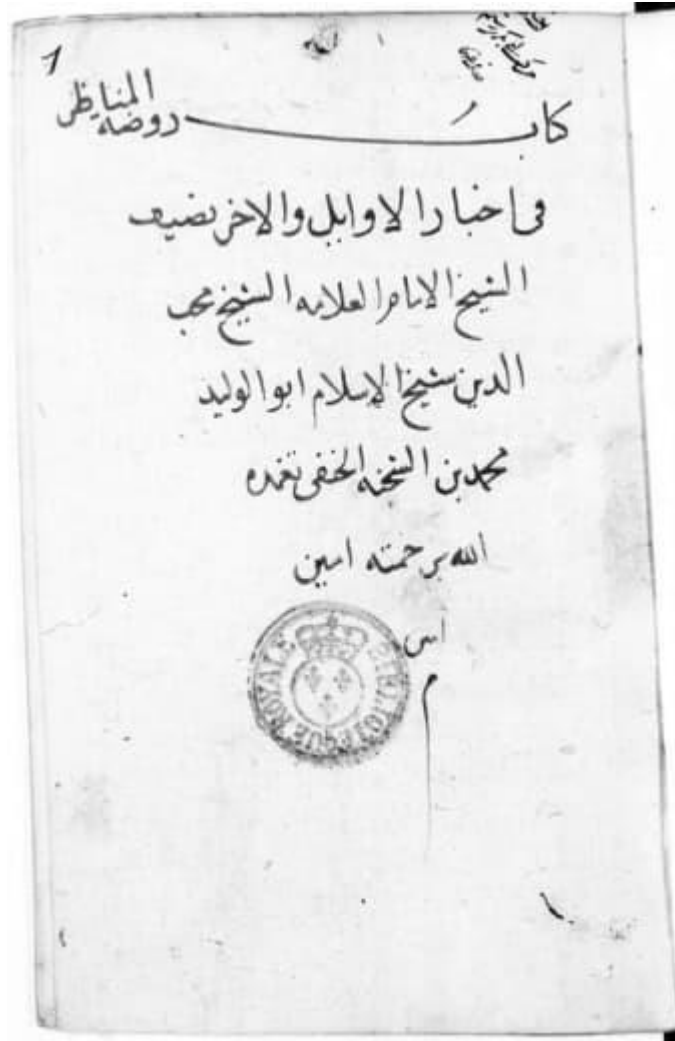 1
كتاب روضة المناظر
في اخبار الاوايل والاخر تصنيف
الشيخ الامام العلامه الشيخ محب
الدين شيخ الاسلام ابو الوليد
محمد بن الشحنه الحنفي تغمده
الله برحمته امين
امين
م
BIBLIOTEQUE ROYALE